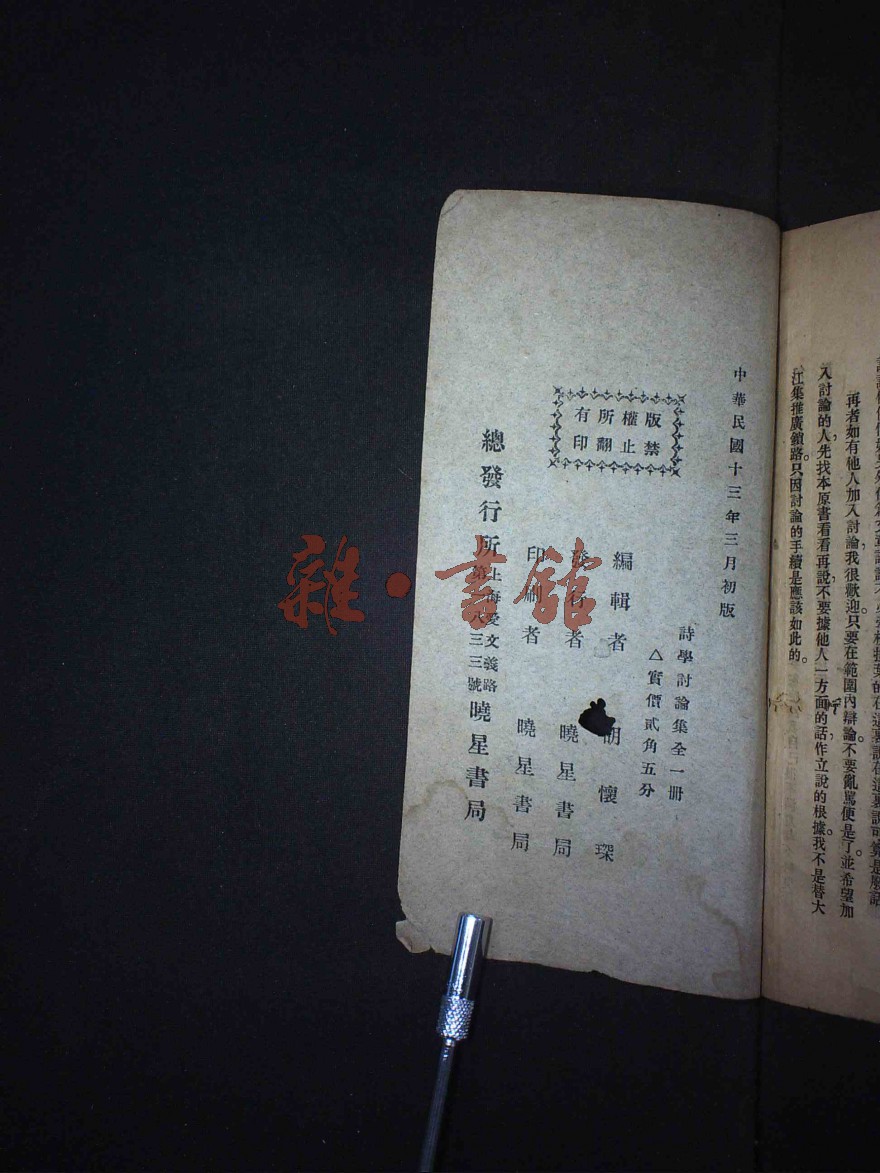 再者如有他人加入討論,我很歡迎。只要在範圍內辯論。不要亂罵便是了。並希望加
入討論的人,先找本原書看看再說,不要據他人一方面的話,作立說的根據。我不是替大
江集推廣銷路。只因討論的手續是應該如此的。
中華民國十三年三月初版
版權所有
禁止翻印
詩學討論集全一冊
△實價貳角五分
編輯者 胡懷琛
發行者 曉星書局
印刷者 曉星書局
總發行所 上海愛文義路第八三三號 曉星書局
雜·書館